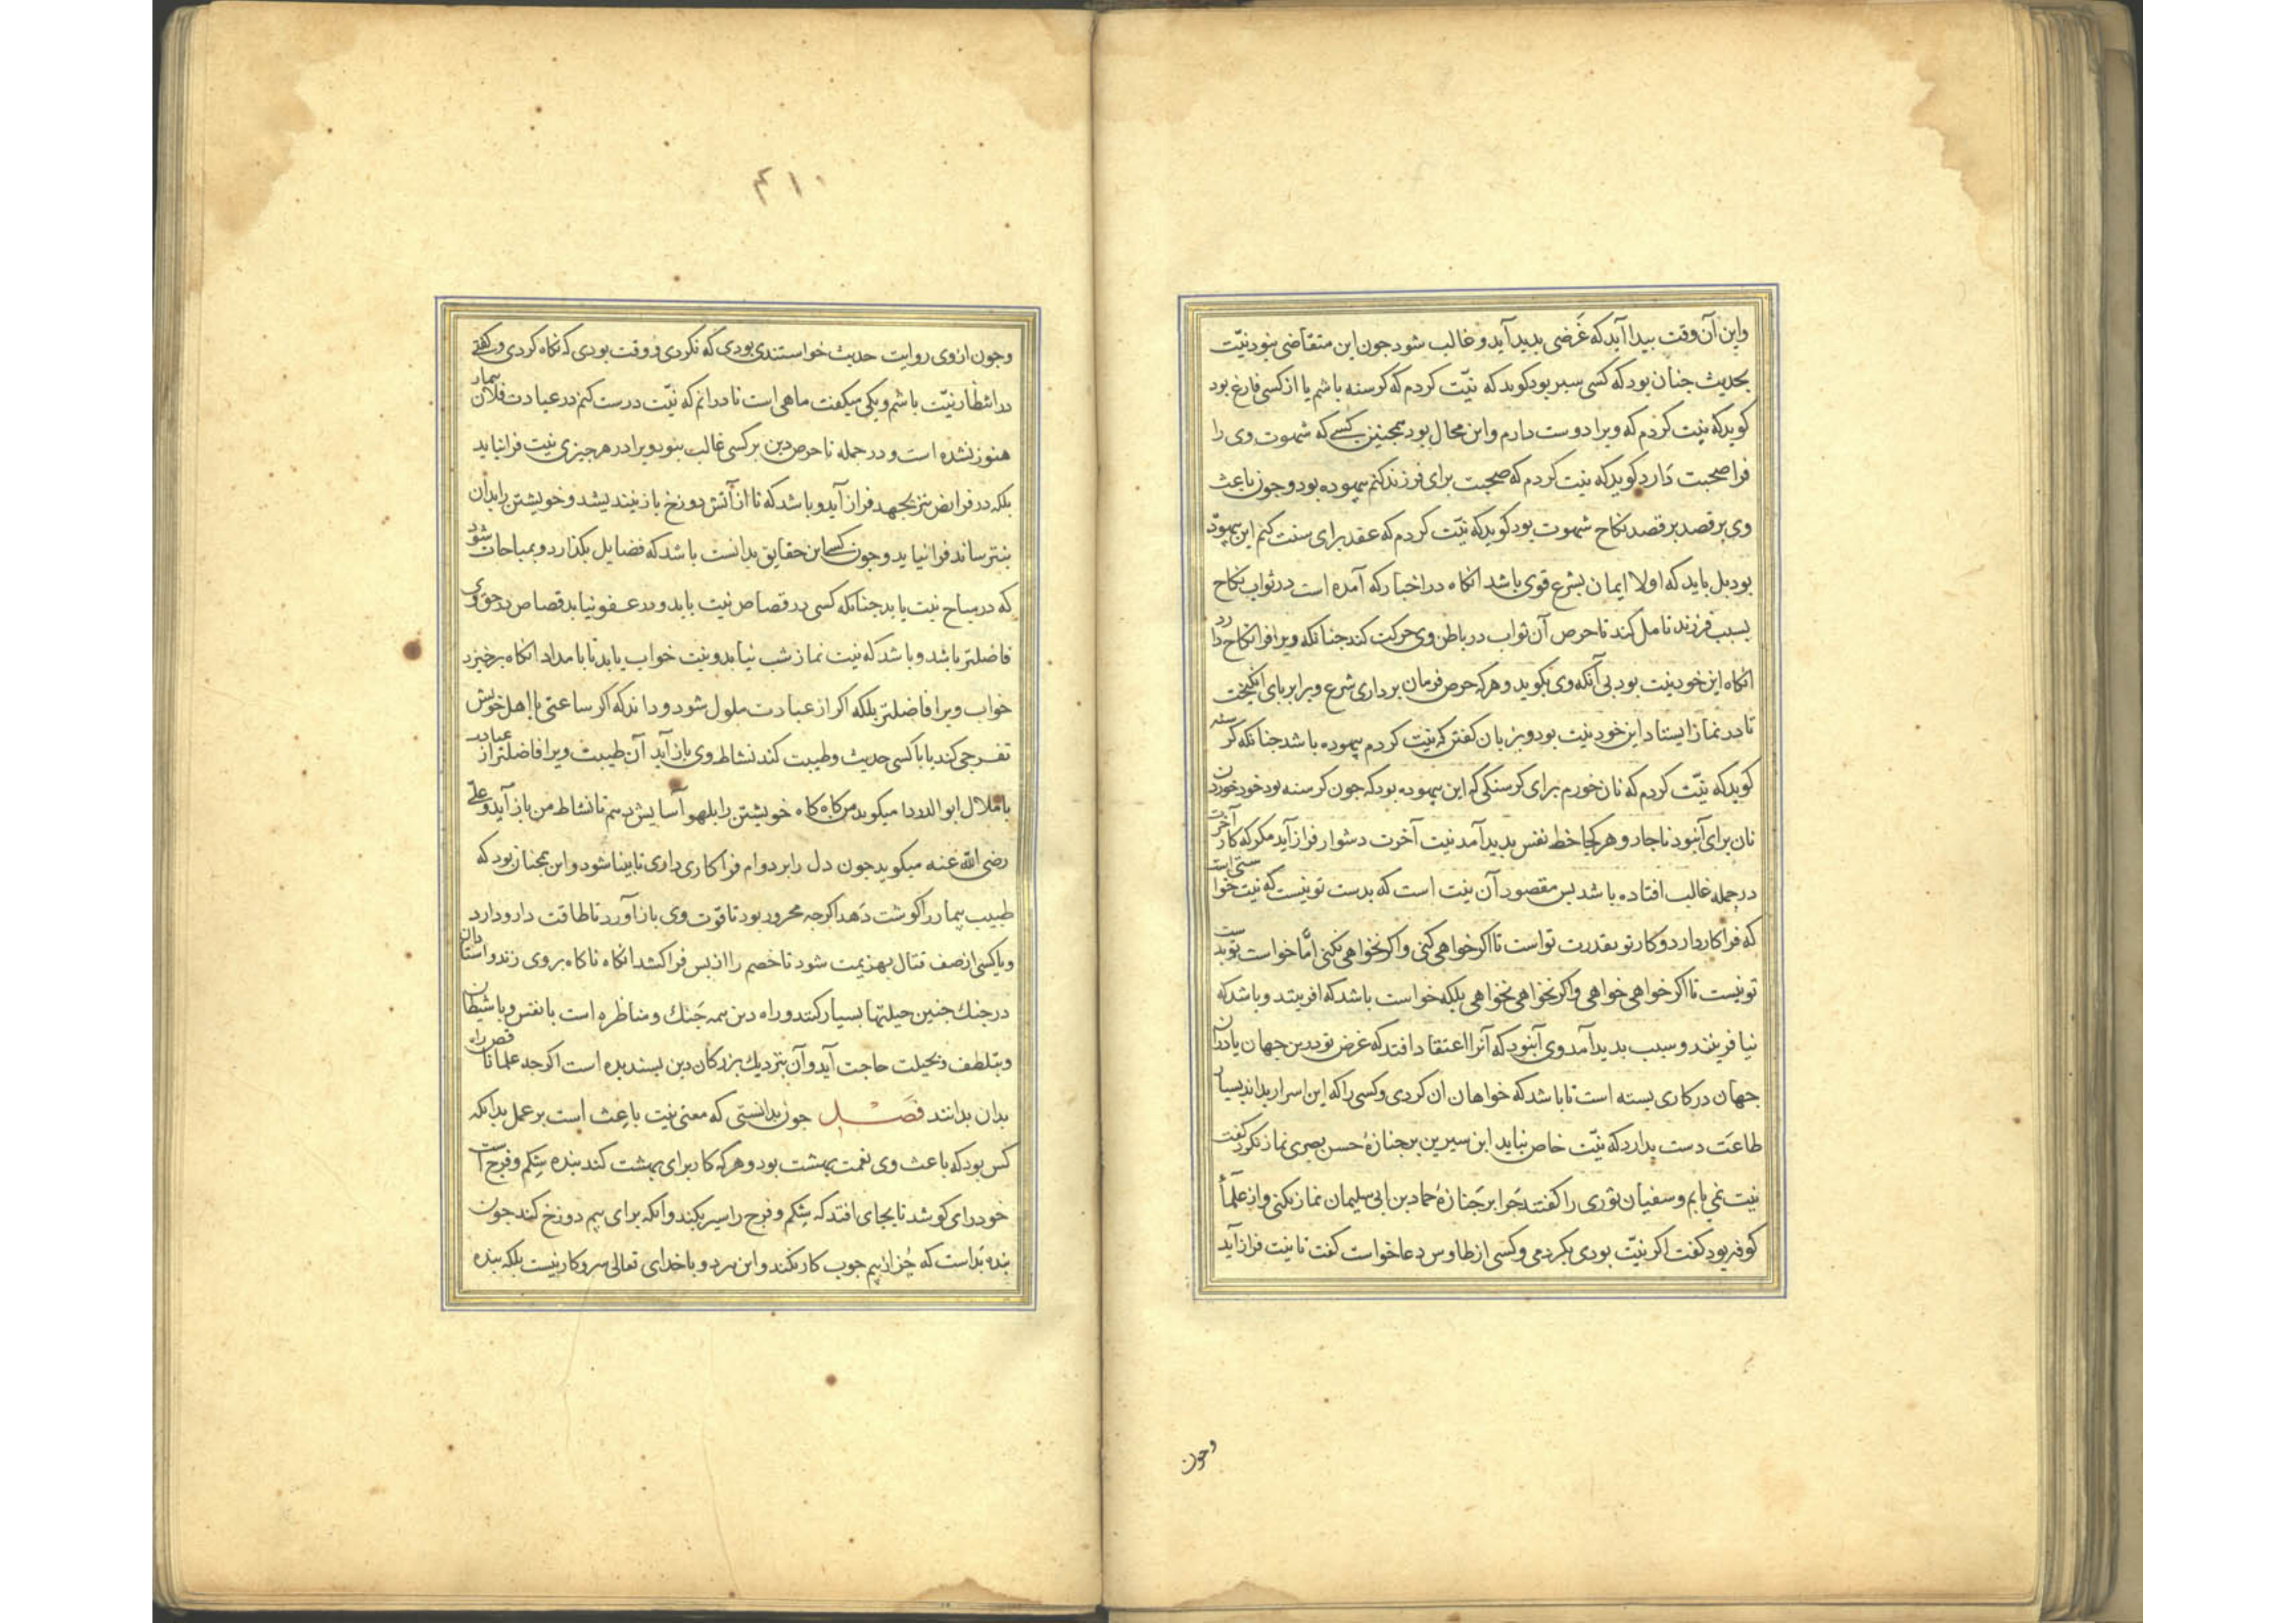 واین آن وقت بیدا آید که غَرَضی بدید آید و غالب شود جون این متقاضی نبود نیّت
بحدیث جنان بود که کسی سیر بود کوید که نیّت کردم که کرسنه باشم یا از کسی فارغ بود
کوید که نیت کردم که ویرا دوست دارم و این محال بود همجنین کسی که شهوت وی را
فرا صحبت دَارد کوید که نیت کردم که صحبت برای فرزند کنم بیهوده بود و جون باعث
وی بر قصد بر قصد نکاح شهوت بود کوید که نیّت کردم که عقد برای سنت کنم این بیهوده
بود بل باید که اولا ایمان بشرع قوی باشد انکاه در اخبار که آمده است در ثواب نکاح
بسبب فرزند تامل کند تا حرص آن ثواب در باطن وی حرکت کند جنانکه ویرا فرا نکاح دارد
انکاه این خود نیت بود بی آنکه وی بکوید و هر که حرص فرمان برداری شرع ویرا بر بای انکیخت
تا در نماز ایستاد این خود نیت بود و بزبان کفتن که نیت کردم بیهوده باشد جنانکه کرسنه
کوید که نیّت کردم که نان خورم برای کرسنکی که این بیهوده بود که جون کرسنه بود خود خوردن
نان برای آن بود ناجار و هر کجا حظ نفس بدید آمد نیت آخرت دشوار فراز آید مکر که کار آخرت
در جمله غالب افتاده باشد بس مقصود آن نیت است که بدست تو نیست که نیت خواستی است
که فرا کار دارد و کار تو بقدرت تو است تا اکر خواهی کنی و اکر نخواهی نکنی امّا خواست تو بدست
تو نیست تا اکر خواهی خواهی و اکر نخواهی نخواهی بلکه خواست باشد که افرینند و باشد که
نیافرینند و سبب بدید آمدوی آن بود که آنرا اعتقاد افتد که غرض تو درین جهان یا در آن
جهان در کاری بسته است تا باشد که خواهان آن کردی و کسی را که این اسرار بداند بسیار
طاعَت دست بدارد که نیّت خاص نیاید ابن سیرین بر جنازهٔ حسن بصری نماز نکرد کفت
نیت نمی یابم و سفیان ثوری را کفتند جَرا بر جَنازهٔ حماد بن ابی سلیمان نماز نکنی و از علمآ
کوفه بود کفت اکر نیّت بودی بکردمی و کسی از طاوس دعا خواست کفت تا نیت فراز آید
وجون
۴۱۰
وجون از وی روایت حدیث خواستندی بودی که نکردی و وقت بودی که ناکاه کردی و کفتی
در انتظار نیّت باشم و یکی میکفت ماهی است تا در آنم که نیّت درست کنم در عیادت فلان بیمار
هنوز نشده است و در جمله تا حرص دین بر کسی غالب نبود ویرا در هر جیزی نیت فرا نیاید
بلکه در فرایض نیز بجهد فراز آید و باشد که تا از آتش دوزخ باز نیندیشد و خویشتن را بدان
بنترساند فرا نیاید و جون کسی این حقایق بدانست باشد که فضایل بکذارد و بمباحات شود
که در مباح نیت یابد جنانکه کسی در قصاص نیت یابد و در عفو نیابد قصاص در حق وی
فاضلتر باشد و باشد که نیت نماز شب نیابد و نیت خواب یابد تا بامداد انکاه برخیزد
خواب ویرا فاضلتر بلکه اکر از عبادت ملول شود و داند که اکر ساعتی با اهل خویش
تفرجی کند یا با کسی حدیث و طیبت کند نشاط وی باز آید آن طیبت ویرا فاضلتر از عبادت
با ملال ابو الدردا میکوید من کاه کاه خویشتن را بلهو آسایش دهم تا نشاط من باز آید و علی
رضی الله عنه میکوید جون دل را بر دوام فرا کاری داری نابینا شود و این همجنان بود که
طبیب بیمار را کوشت دَهد اکرجه محرور بود تا قوت وی باز آورد تا طاقت دارو دارد
و یا کسی از صف قتال بهزیمت شود تا خصم را از بس فرا کشد انکاه ناکاه بر وی زند و استادان
در جنك جنین حیلتها بسیار کنند و راه دین همه جَنك و مناظره است با نفس و با شیطان
و بتلطف و بحیلت حاجت آید و آن بنزدیك بزرکان دین بسندیده است اکرجه علما ناقص راه
بدان بدانند فَصْل جون بدانستی که معنی نیت باعث است بر عمل بدانکه
کس بود که باعث وی نعمت بهشت بود و هر که کار برای بهشت کند بنده شکم و فرج است
خود را می کوشد تا بجای افتد که شکم و فرج را سیر بکند و انکه برای بیم دوزخ کند جون
بنده بد است که جُز از بیم جوب کار نکند و این هر دو با خدای تعالی سر و کار نیست بلکه بنده